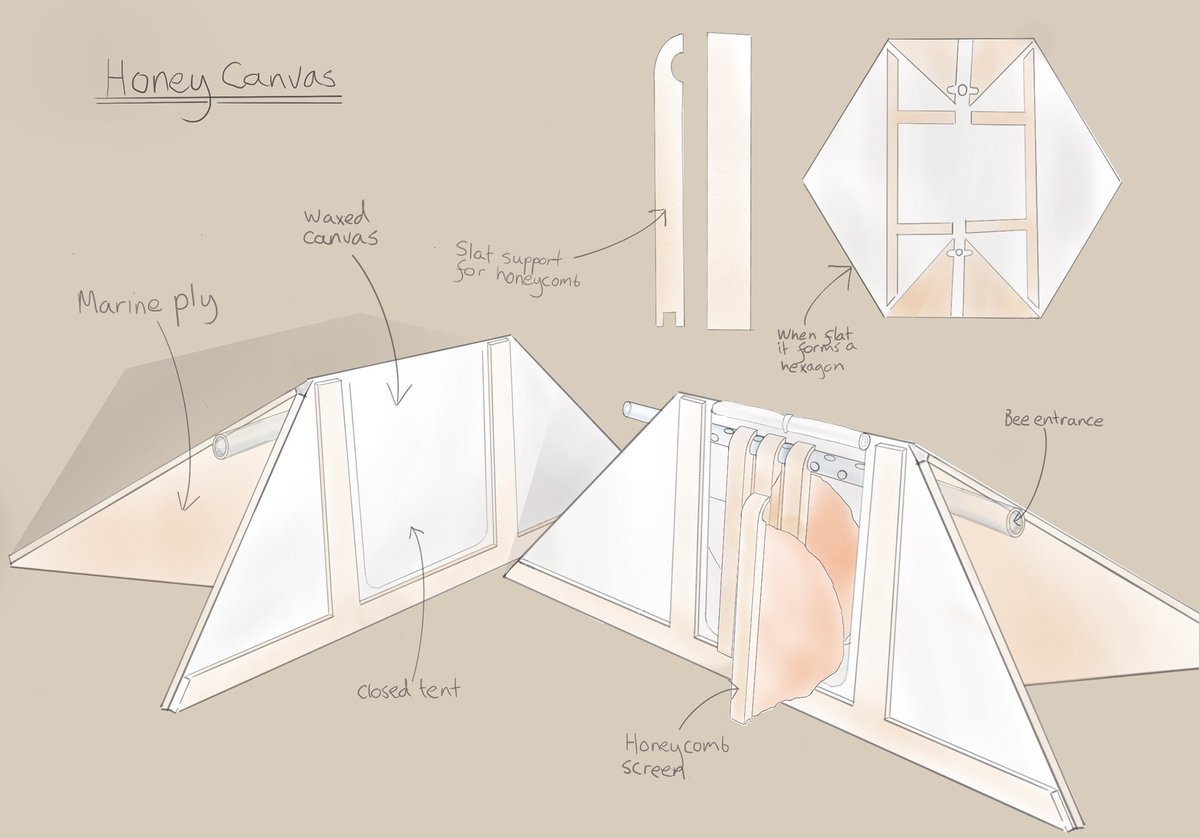 Honey Canvas
waxed
canvas
Slat support
for honeycomb
Marine ply
When flat
it forms a
hexagon
Bee entrance
Closed tent
Honeycomb
screen